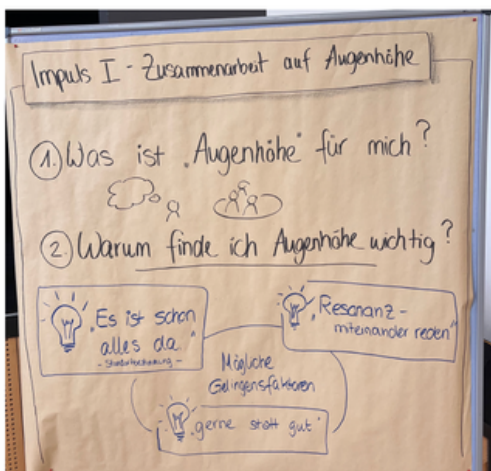 Impuls I - Zusammenarbeit auf Augenhöhe
1. Was ist „Augenhöhe" für mich?
2. Warum finde ich Augenhöhe wichtig?
„Es ist schon
alles da"
„Resonanz-
miteinander reden"
Mögliche
Gelingensfaktoren
„gerne statt gut"